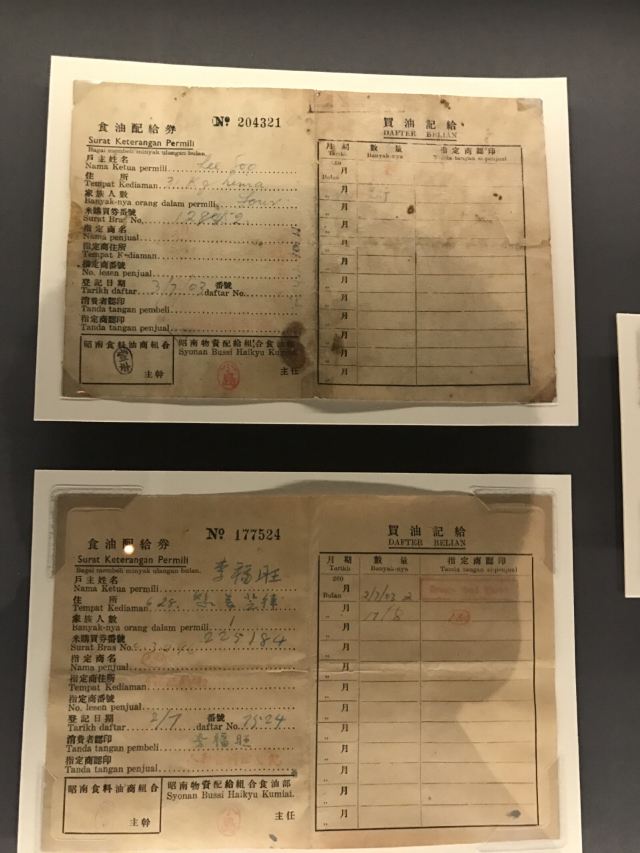 食油配給券
№ 204321
Surat Keterangan Permili
Bagai membeli minyak ulangan bulan.
戶主姓名
Nama Ketua permili
Lee
住 所
Tempat Kediaman
家族人數
Banyak-nya orang dalam permili
Four
米購買券番號
Surat Bras No.
指定商名
Nama penjual
指定商住所
Tempat Kediaman
指定商番號
No. lesen penjual
登記日期 番號
Tarikh daftar 3/7 03 daftar No.
消費者認印
Tanda tangan pembeli
指定商認印
Tanda tangan penjual
昭南食料油商組合
主幹
昭南物資配給組合食油部
Syonan Bussi Haikyu Kumiai.
主任
買油記給
DAFTER BELIAN
月期 數量 指定商認印
Tarikh Banyak-nya Tanda tangan si-penjual
月
Bulan
月
月
月
月
月
月
月
月
月
月
月
食油配給券
№ 177524
Surat Keterangan Permili
Bagai membeli minyak ulangan bulan.
戶主姓名 李福旺
Nama Ketua permili
住 所
Tempat Kediaman
家族人數
Banyak-nya orang dalam permili 1
米購買券番號
Surat Bras No. 225184
指定商名
Nama penjual
指定商住所
Tempat Kediaman
指定商番號
No. lesen penjual
登記日期 番號
Tarikh daftar 2/7 daftar No. 7524
消費者認印
Tanda tangan pembeli 李福旺
指定商認印
Tanda tangan penjual
昭南食料油商組合
主幹
昭南物資配給組合食油部
Syonan Bussi Haikyu Kumiai.
主任
買油記給
DAFTER BELIAN
月期 數量 指定商認印
Tarikh Banyak-nya Tanda tangan si-penjual
260
月
Bulan 2/7/03 2
月 17/8
月
月
月
月
月
月
月
月
月
月